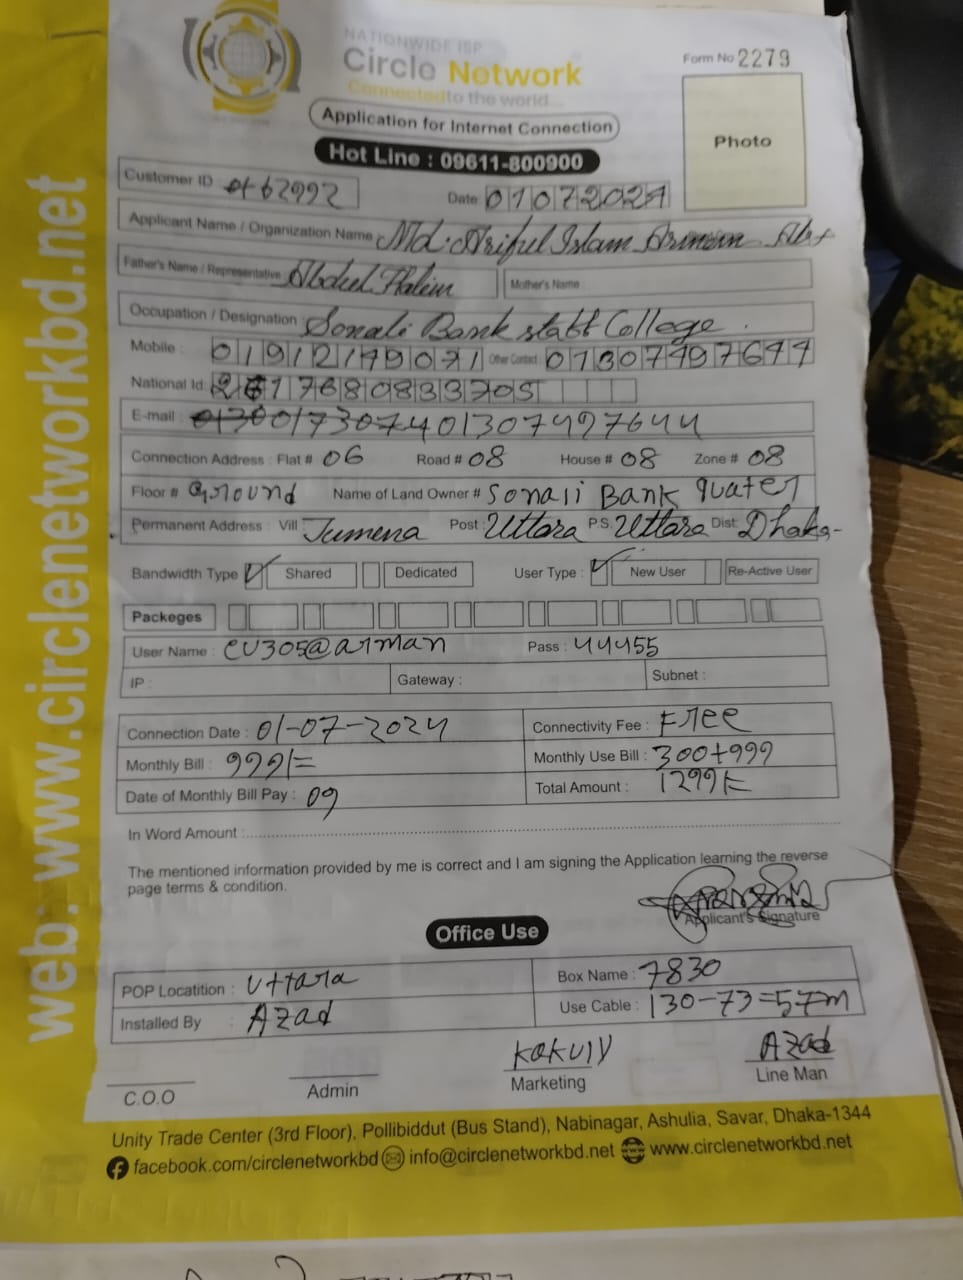 NATIONWIDE ISP
Circle Network
Connected to the world...
Form No 2279
Application for Internet Connection
Photo
Hot Line : 09611-800900
Customer ID 62992
Date 01072024
Applicant Name / Organization Name Md. Ariful Islam
Father's Name / Representative : Abdul Halim Mother's Name :
Occupation / Designation : Sonali Bank staff College.
Mobile : Other Contact :
National Id:
E-mail :
Connection Address : Flat # 06 Road # 08 House # 08 Zone # 08
Floor # Ground Name of Land Owner # Sonali Bank quater
Permanent Address : Vill : Jumena Post : Uttara P.S. Uttara Dist: Dhaka-
Bandwidth Type Shared Dedicated User Type : New User Re-Active User
Packeges
User Name : cu305@arman Pass : 44455
IP : Gateway : Subnet :
Connection Date : 01-07-2024 Connectivity Fee : Free
Monthly Bill : 999/= Monthly Use Bill : 300+999
Date of Monthly Bill Pay : 09 Total Amount : 1299/=
In Word Amount :
The mentioned information provided by me is correct and I am signing the Application learning the reverse
page terms & condition.
Applicant's Signature
Office Use
POP Locatition : Uttara Box Name : 7830
Installed By : Azad Use Cable : 130-73=57m
Azad
C.O.O Admin Marketing Line Man
Unity Trade Center (3rd Floor), Pollibiddut (Bus Stand), Nabinagar, Ashulia, Savar, Dhaka-1344
facebook.com/circlenetworkbd info@circlenetworkbd.net www.circlenetworkbd.net
web: www.circlenetworkbd.net